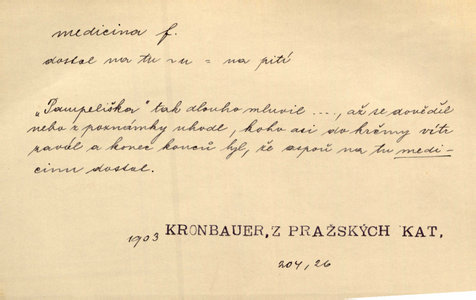 medicina f.
dostal na tu -u = na pití
„Pampeliška" tak dlouho mluvil ..., až se dověděl
nebo z poznámky uhodl, koho asi do krčmy vítr
zavál a konec konců byl, že aspoň na tu medi-
cinu dostal.
1903 KRONBAUER, Z PRAŽSKÝCH KAT.
204, 26